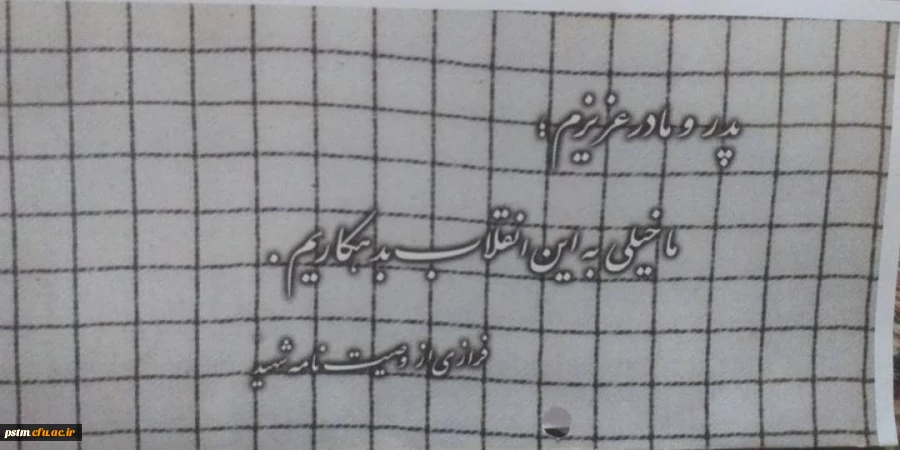 پدر و مادر عزیزم ؛
ما خیلی به این انقلاب بدهکاریم .
فرازی از وصیت نامه شهید
pstm.cfu.ac.ir